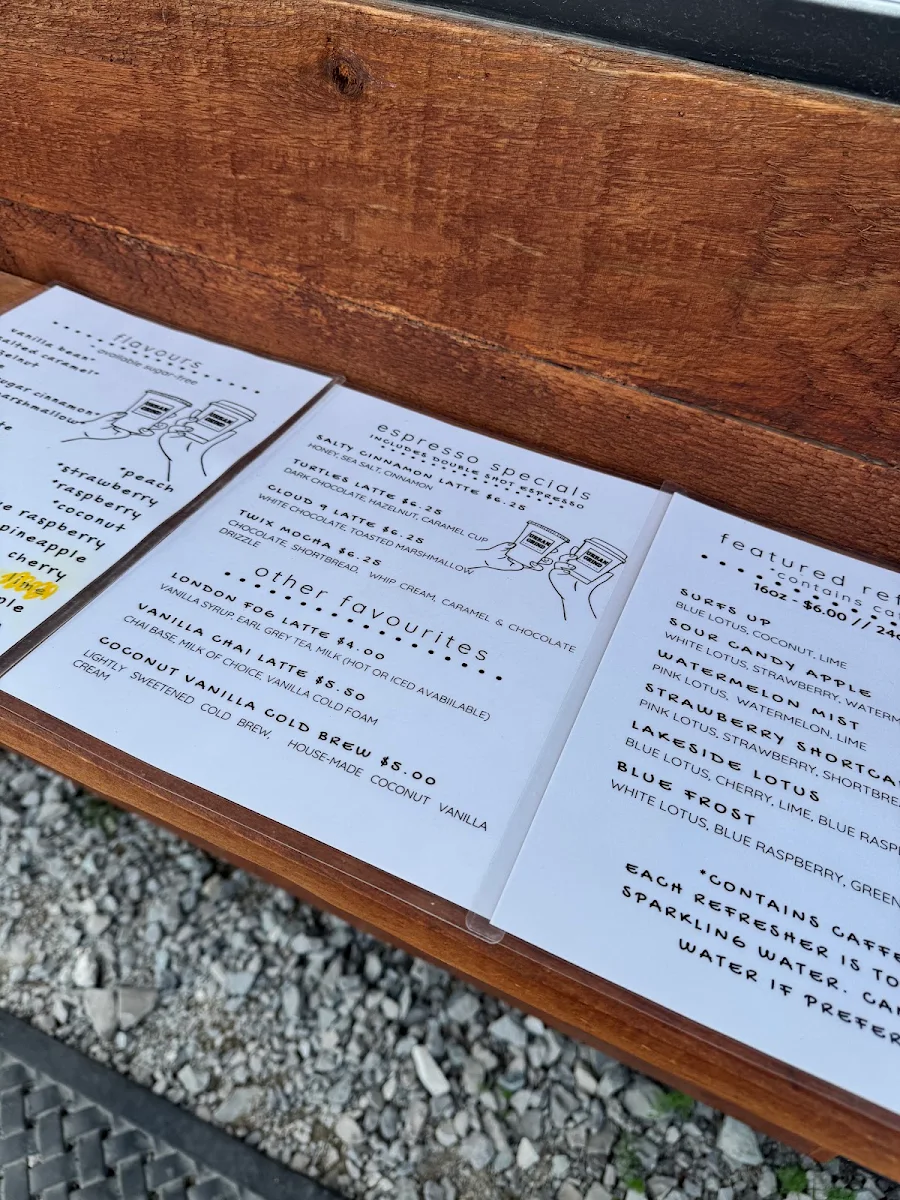 flavours
available sugar-free
vanilla bean*
salted caramel*
sugar cinnamon*
marshmallow
URBAN GRIND
URBAN GRIND
*peach
*strawberry
*raspberry
*coconut
raspberry
pineapple
cherry
lime
espresso specials
INCLUDES DOUBLE SHOT ESPRESSO
SALTY CINNAMON LATTE $6.25
HONEY, SEA SALT, CINNAMON
TURTLES LATTE $6.25
DARK CHOCOLATE, HAZELNUT, CARAMEL CUP
CLOUD 9 LATTE $6.25
WHITE CHOCOLATE, TOASTED MARSHMALLOW
TWIX MOCHA $6.25
CHOCOLATE, SHORTBREAD, WHIP CREAM, CARAMEL & CHOCOLATE
DRIZZLE
URBAN GRIND
URBAN GRIND
other favourites
LONDON FOG LATTE $4.00
VANILLA SYRUP, EARL GREY TEA, MILK (HOT OR ICED AVABIILABLE)
VANILLA CHAI LATTE $5.50
CHAI BASE, MILK OF CHOICE, VANILLA COLD FOAM
COCONUT VANILLA COLD BREW $5.00
LIGHTLY SWEETENED COLD BREW, HOUSE-MADE COCONUT VANILLA
CREAM
featured
*contains
16oz - $6.00 // 24
SURFS UP
BLUE LOTUS, COCONUT, LIME
SOUR CANDY APPLE
WHITE LOTUS, STRAWBERRY,
WATERMELON MIST
PINK LOTUS, WATERMELON, LIME
STRAWBERRY
PINK LOTUS, STRAWBERRY,
LAKESIDE LOTUS
BLUE LOTUS, CHERRY, LIME, BLUE
BLUE FROST
WHITE LOTUS, BLUE RASPBERRY, GREEN
*CONTAINS
EACH REFRESHER IS
SPARKLING WATER.
WATER IF